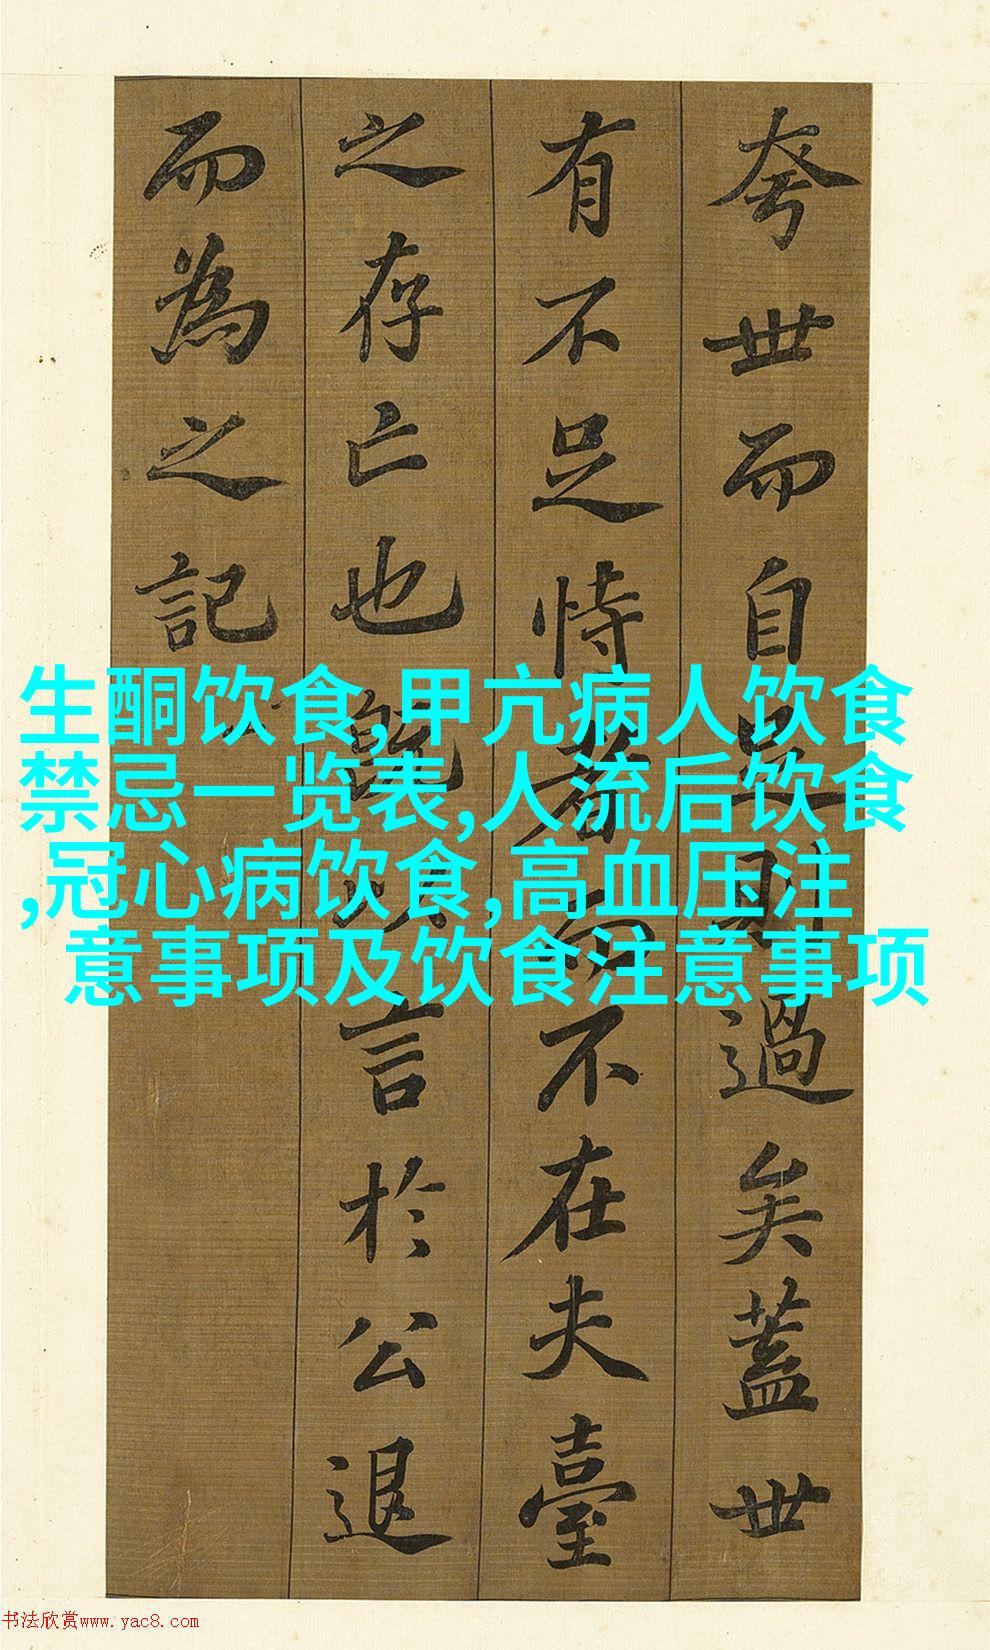 夸世而自足則過矣蓋世
有不足恃者而不在夫臺
之存亡也既以言於公退
而為之記
生酮饮食,甲亢病人饮食
禁忌一览表,人流后饮食
,冠心病饮食,高血压注
意事项及饮食注意事项
书法欣赏www.yac8.com